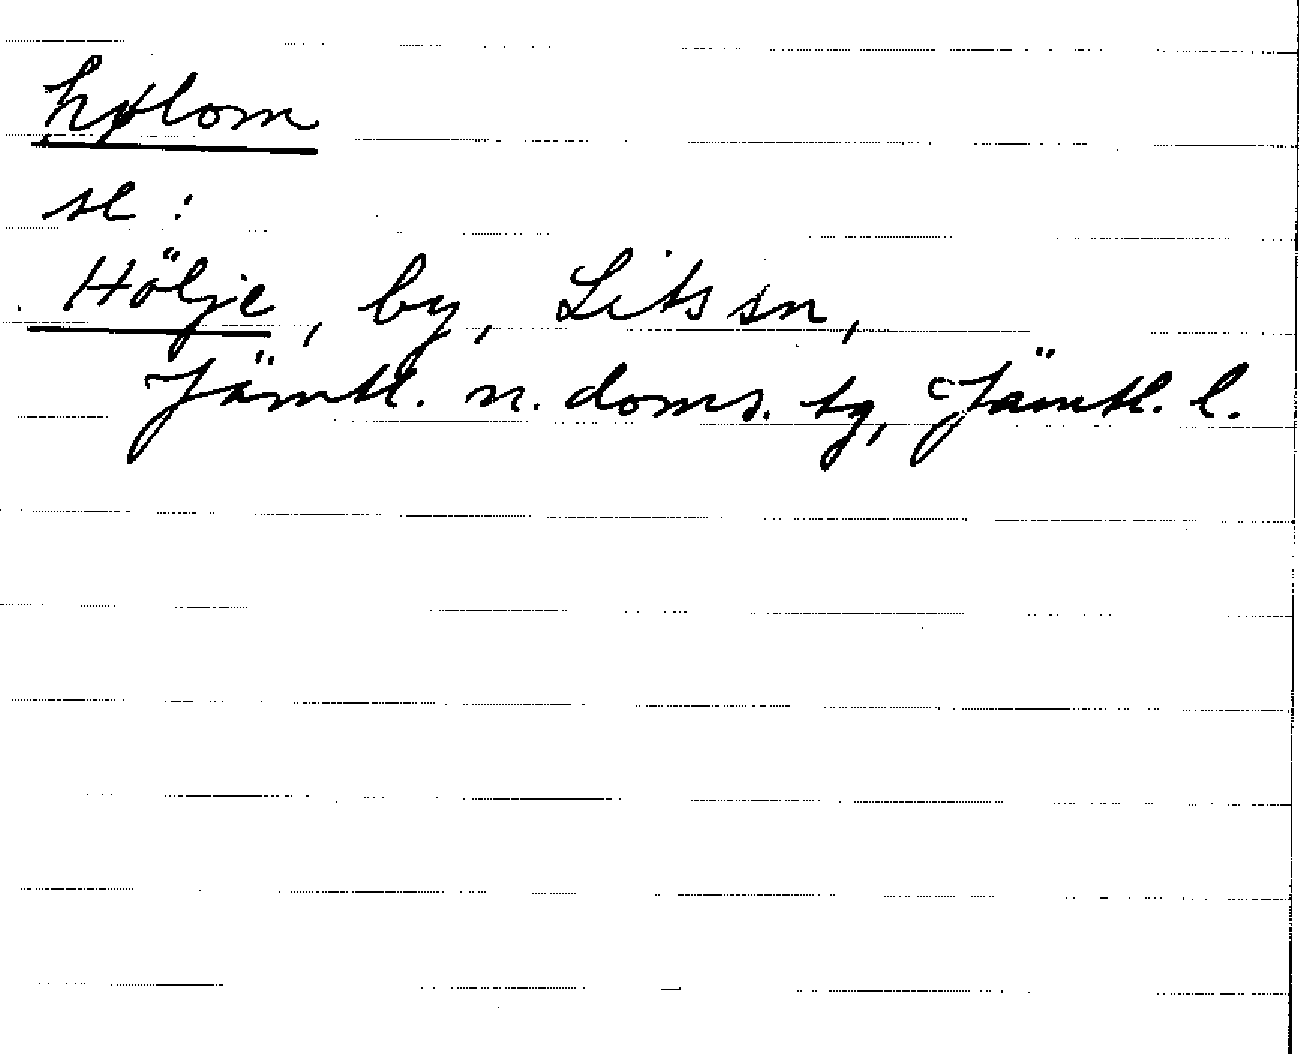 hølom
se :
Hölje, by, Lits sn,
Jämtl. n. doms. tg, Jämtl. l.